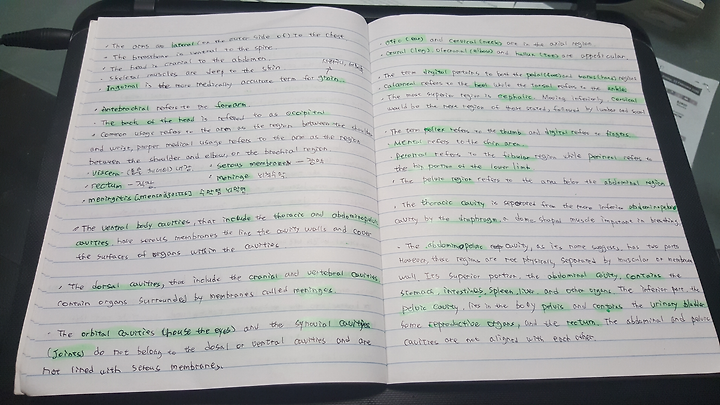 • The arms are lateral (on the outer side of) to the chest.
• The breastbone is ventral to the spine.
• The head is cranial to the abdomen.
• Skeletal muscles are deep to the skin
• Inguinal is the more medically accurate term for groin.
• Antebrachial refers to the forearm.
• The back of the head is referred to as occipital
• Common usage refers to the arm as the region between the shoulder
and wrist, proper medical usage refers to the arm as the region
between the shoulder and elbow, or the brachial region.
• viscera 내장, • serous membranes –
• rectum – 직장 • meninge 뇌척수막
• meningitis 뇌척수막염
• The ventral body cavities, that include the thoracic and abdominopelvic
cavities have serous membranes the line the cavity walls and cover
the surfaces of organs within the cavities.
• The dorsal cavities, that include the cranial and vertebral cavities,
contain organs surrounded by membranes called meninges.
• The orbital cavities (house the eyes) and the synovial cavities
(joints) do not belong to the dosal or ventral cavities and are
not lined with serous membranes.
• Otic (ear) and cervical (neck) are in the axial region.
• Crural (leg), Olecranal (elbow) and hallux (toe) are appendicular.
• The term digital pertains to both the pedal (foot) and manus (hand) regions
• Calcaneal refers to the heel while the tarsal refers to the ankle
• The most superior region is cephalic. Moving inferiorly, cervical
would be the next region of those stated, followed by lumbar and
• The term pollex refers to the thumb and digital refers to fingers.
• Mental refers to the chin area.
• Peroneal refers to the fibular region while perineal refers to
the top portion of the lower limb.
• The pelvic region refers to the area below the abdominal region
• The thoracic cavity is separated from the more inferior abdominopelvic
cavity by the diaphragm, a dome-shaped muscle important in breathing.
• The abdominopelvic cavity, as its name suggests, has two parts
However, these regions are not physically separated by muscular or membrane
wall. Its superior portion, the abdominal cavity, contains the
stomach, intestines, spleen, liver, and other organs. The inferior part, the
pelvic cavity, lies in the body pelvis and contains the urinary bladder
some reproductive organs, and the rectum. The abdominal and pelvic
cavities are not aligned with each other.